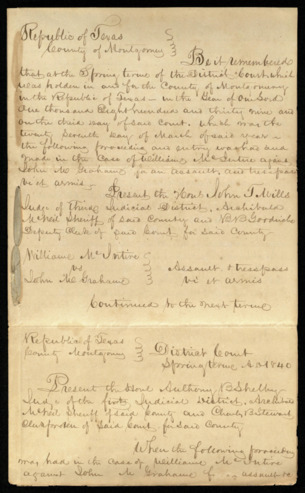 Republic of Texas
County of Montgomery
Be it remembered
that at the Spring term of the District Court which
was holden in and for the County of Montgomery
in the Republic of Texas – in the Year of our Lord
One thousand Eight hundred and thirty nine and
on the third day of said court which was the
twenty Seventh day of March of said year –
the following proceeding and entry was had and
made in the Case of William McIntire against
John McGrahame for an Assault and trespass
vi et armis –
Present the Honl John T Mills
Judge of third Judicial District, Archibald
McNeil Sheriff of said County and N B Goodrich
Deputy Clerk of said Court for said County
William McIntire
vs
John McGrahame
Assault & trespass
vi et armis
Continued to the next term
Republic of Texas
County Montgomery
District Court
Spring term A.D. 1840
Present the Honl Anthony B Shelby
Judge of the first Judicial District, Archibald
McNeil Sheriff of Said County and Charles B Stewart
Clerk of Said Court for Said County
When the following proceeding
was had in the case of William McIntire
against John McGrahame for assault &